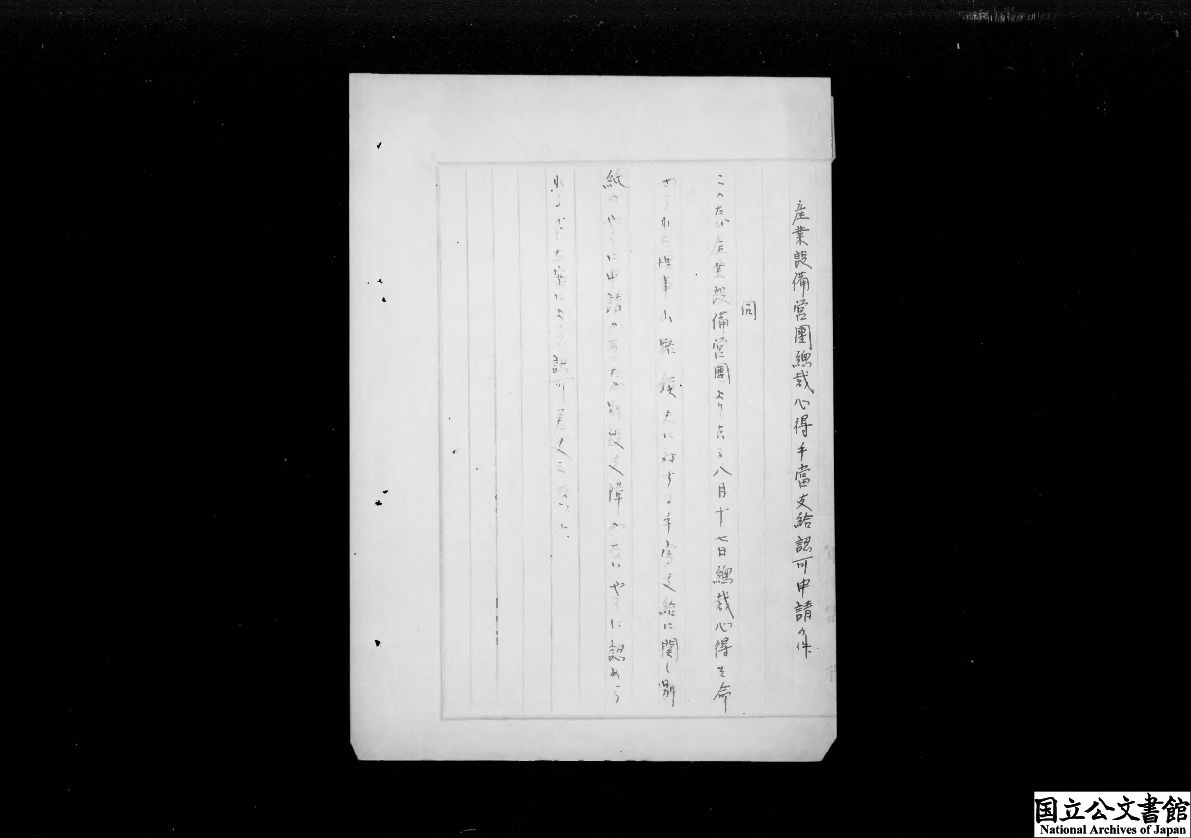 産業設備営團總裁心得手當支給認可申請の件
伺
このたび産業設備営團より去る八月十七日總裁心得を命
ぜられた理事山 鎮夫に対する手當の支給に関し別
紙のやうに申請のあつたが別段支障がないやうに認めら
れるから左案によつて認可差支へないか
国立公文書館
National Archives of Japan